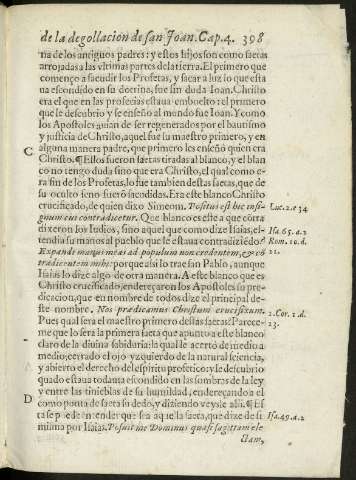 de la degollacion de san Ioan. Cap. 4. 398
na de los antiguos padres: y estos hijos son como saetas
arrojadas a las vltimas partes de la tierra. El primero que
començo a sacudir los Profetas, y sacar a luz lo que esta
ua escondido en su dotrina, fue sin duda Ioan. Christo
era el que en las profecias estaua embuelto: el primero
que le descubrio y se enseño al mundo fue Ioan. Y como
los Apostoles auian de ser regenerados por el bautismo
y justicia de Christo, aquel fue su maestro primero, y en
alguna manera padre, que primero les enseñó quien era
C
Christo. ¶ Ellos fueron saetas tiradas al blanco, y el blan
co no tengo duda sino que era Christo, el qual como e-
ra fin de los Profetas, lo fue tambien destas saetas, que de
su oculto seno fuerō sacudidas. Era este blanco Christo
crucificado, de quien dixo Simeon. Positus est hic in si-
Luc. 2. c. 34
gnum cui contradicetur. Que blanco es este a que cōtra
dixeron los Iudios, sino aquel que como dize Isaias, el-
Isa. 65. a. 2
tendia sus manos al pueblo que le estaua contradiziēdo?
Rom. 10. d.
21.
Expandi manus meas ad populum non credentem, & cō
tradicentem mihi: por que assi lo trae san Pablo, aunque
Isaias lo dize algo de otra manera. A este blanco que es
Christo crucificado, endereçaron los Apostoles su pre-
dicacion, que en nombre de todos dize el principal de-
ste nombre. Nos prædicamus Christum crucifixum.
2. Cor. 1. d.
23.
Pues qual sera el maestro primero destas saetas? Parece-
me que lo sera la primera saeta que apunto a este blanco
claro de la diuina sabiduria: la qual le acertò de medio a
medio, cerrado el ojo yzquierdo de la natural sciencia,
y abierto el derecho del espiritu profetico: y le descubrio
quādo estaua todauia escondido en las sombras de la ley
D
y entre las tinieblas de su humildad, endereçando a el
como punta de saeta su dedo, y diziendo veysle alli. ¶ Es
ta se puede entender que sea aquella saeta, que dize de si
Isa. 49. a. 2
misma por Isaias. Posuit me Dominus quasi sagittam ele
ctam,